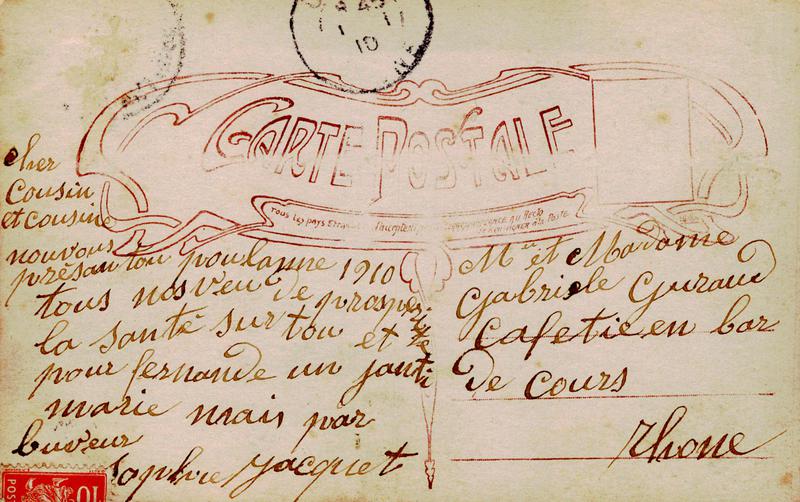 CARTE POSTALE
TOUS LES PAYS ETRANGERS
CORRESPONDANCE AU RECTO
SE RENSEIGNER A LA POSTE
10
cher
cousin
et cousine
nouvous
présanton poulanne 1910
tous nos veu de prosperité
la santé sur tou et
pour fernande un janti
marie mais par
buveur
Sophie Jacquet
Mr et Madame
Gabriele Guraud
cafetie en bar
De cours
Rhone
10
POS